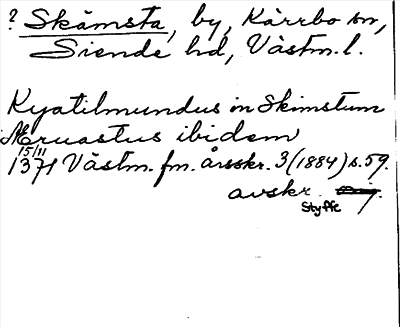 ? Skämsta, by, Kärrbo sn,
Siende hd, Västm. l.
Kyatilmundus in Skimstum
Æruastus ibidem
15/11
1371 Västm. fm. årsskr. 3 (1884) s. 59.
avskr.
Styffe